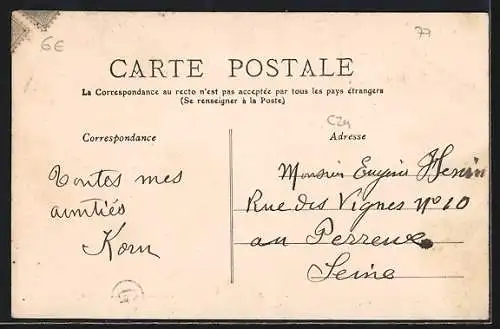 6€
77
CARTE POSTALE
La Correspondance au recto n'est pas acceptée par tous les pays étrangers
(Se renseigner à la Poste)
Correspondance
Adresse
Toutes mes
amitiés
Korn
Monsieur Eugène Henin
Rue des Vignes N° 10
au Perreux
Seine